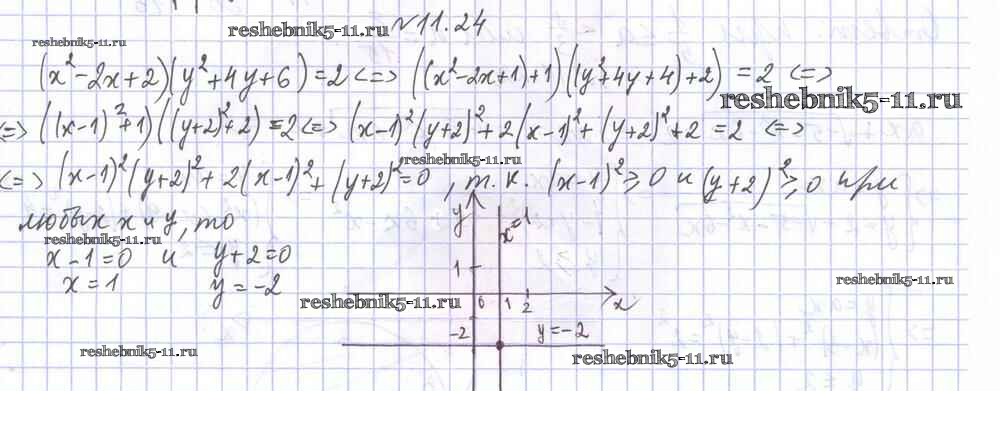 reshebnik5-11.ru №11.24
reshebnik5-11.ru
(x²-2x+2)(y²+4y+6)=2 <=> ((x²-2x+1)+1)((y²+4y+4)+2) =2 <=>
reshebnik5-11.ru
<=> ((x-1)²+1)((y+2)²+2)=2 <=> (x-1)²(y+2)²+2(x-1)²+(y+2)²+2 =2 <=>
reshebnik5-11.ru
<=> (x-1)²(y+2)²+2(x-1)²+(y+2)²=0, т.к. (x-1)²≥0 и (y+2)²≥0 при
любых x и y, то
reshebnik5-11.ru
x-1=0 и y+2=0
x=1 y=-2
y x=1
1
reshebnik5-11.ru
reshebnik5-11.ru 0 1 2 x
-2 y=-2
reshebnik5-11.ru reshebnik5-11.ru